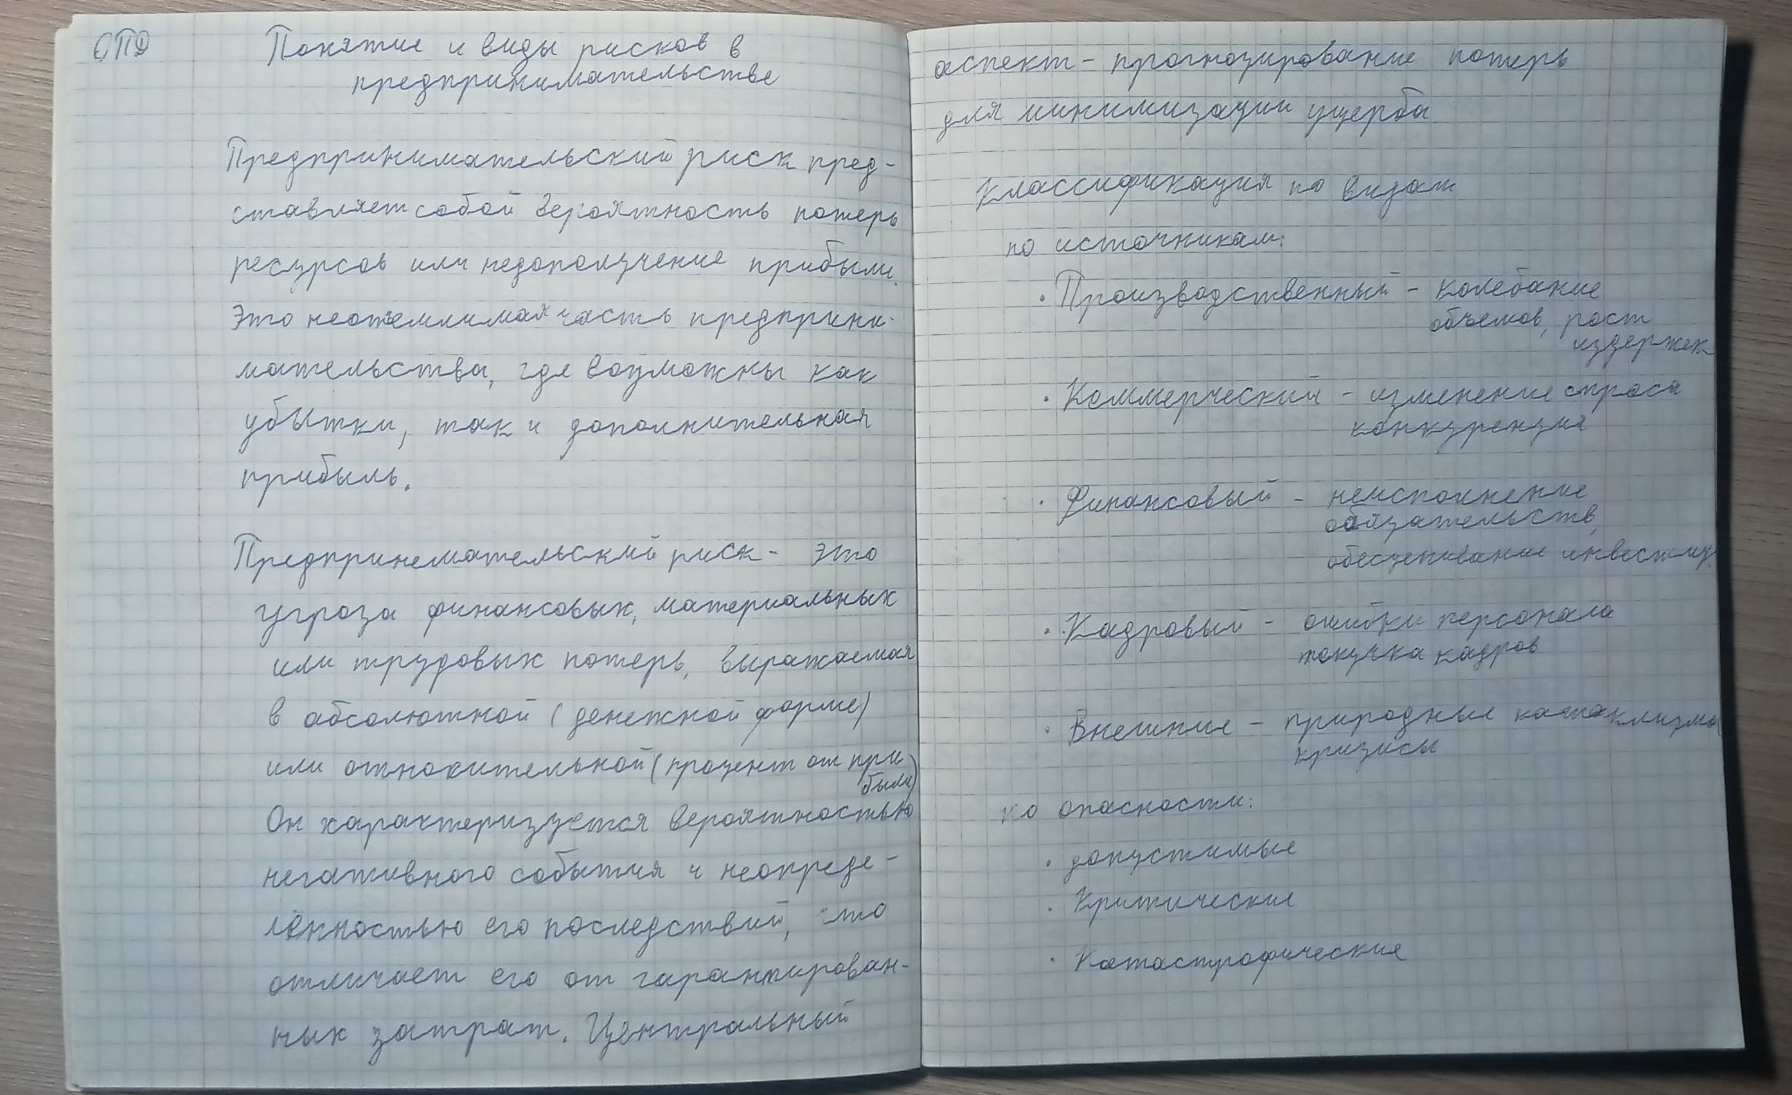 ОПД
Понятие и виды рисков в
предпринимательстве
Предпринимательский риск пред-
ставляет собой вероятность потерь
ресурсов или недополучение прибыли.
Это неотемлимая часть предприни-
мательства, где возможны как
убытки, так и дополнительная
прибыль.
Предпринемательский риск - это
угроза финансовых, материальных
или трудовых потерь, выражаемая
в абсолютной (денежной форме)
или относительной (процент от при
были)
Он характеризуется вероятностью
негативного события и неопреде-
лённостью его последствий, что
отличает его от гарантирован-
ных затрат. Центральный
аспект - прогнозирование потерь
для минимизации ущерба
Классификация по видам
по источникам:
· Производственный - колебание
объемов, рост
издержек
· Коммерческий - изменение спроса
конкуренция
· Финансовый - неисполнение
обязательств,
обесценивание инвестиц.
· Кадровый - ошибки персонала
текучка кадров
· Внешние - природные катаклизмы
кризисы
по опасности:
· допустимые
· Критические
· Катастрофические